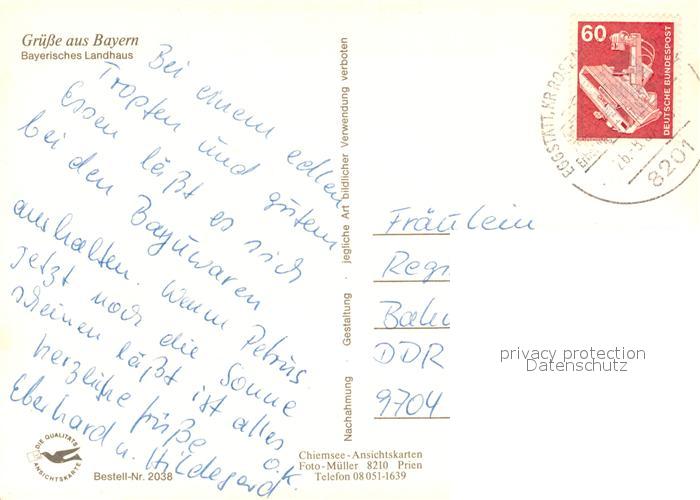 Grüße aus Bayern
Bayerisches Landhaus
Bei einem edlen
Tropfen und gutem
Essen läßt es sich
bei den Bajuwaren
aushalten. Wenn Petrus
jetzt noch die Sonne
scheinen läßt ist alles
o.k.
herzliche Grüße
Eberhard u. Hildegard
DIE QUALITÄTS
ANSICHTSKARTE
Bestell-Nr. 2038
Nachahmung · Gestaltung · jegliche Art bildlicher Verwendung verboten
Chiemsee-Ansichtskarten
Foto-Müller 8210 Prien
Telefon 08051-1639
60
DEUTSCHE BUNDESPOST
EGGSTÄTT, KR ROSEN
8201
Fräulein
Regi
DDR
9704
privacy protection
Datenschutz